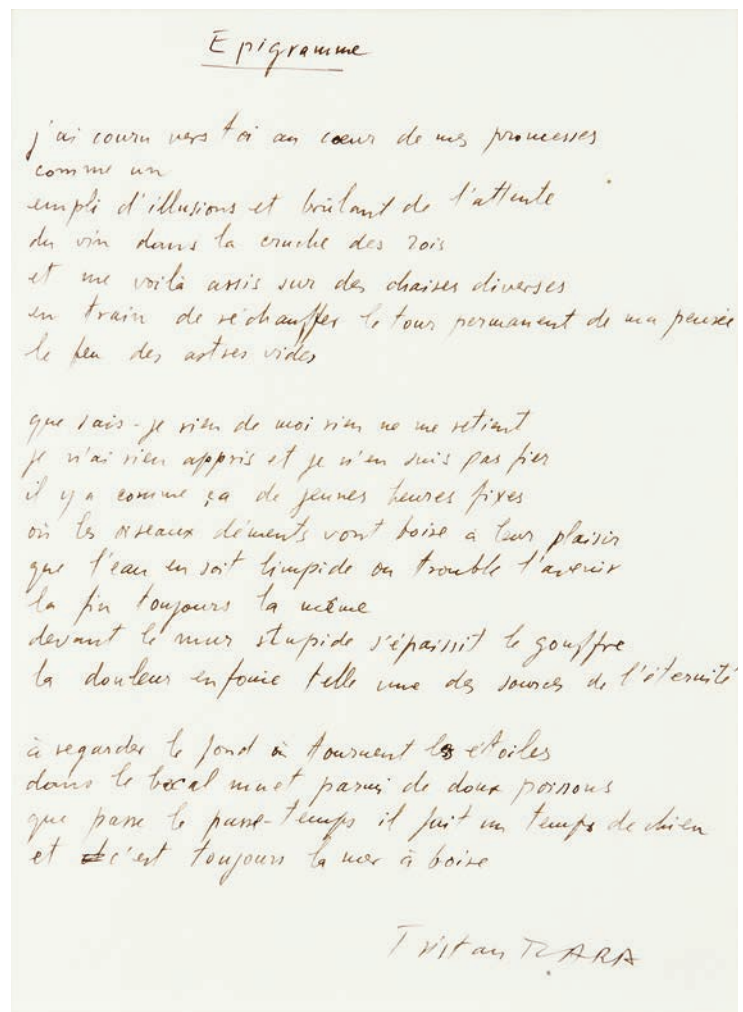 Epigramme
j'ai couru vers toi au cœur de mes promesses
comme un
empli d'illusions et brûlant de l'attente
du vin dans la cruche des rois
et me voilà assis sur des chaises diverses
en train de réchauffer le tour permanent de ma pensée
le feu des astres vides
que sais-je rien de moi rien ne me retient
je n'ai rien appris et je n'en suis pas fier
il y a comme ça de jeunes heures fixes
où les oiseaux déments vont boire à leur plaisir
que l'eau en soit limpide ou trouble l'avenir
la fin toujours la même
devant le mur stupide s'épaissit le gouffre
la douleur enfouie telle une des sources de l'éternité
à regarder le fond où tournent les étoiles
dans le bocal muet parmi de doux poissons
que passe le passe-temps il fait un temps de chien
et c'est toujours la mer à boire
Tristan TZARA